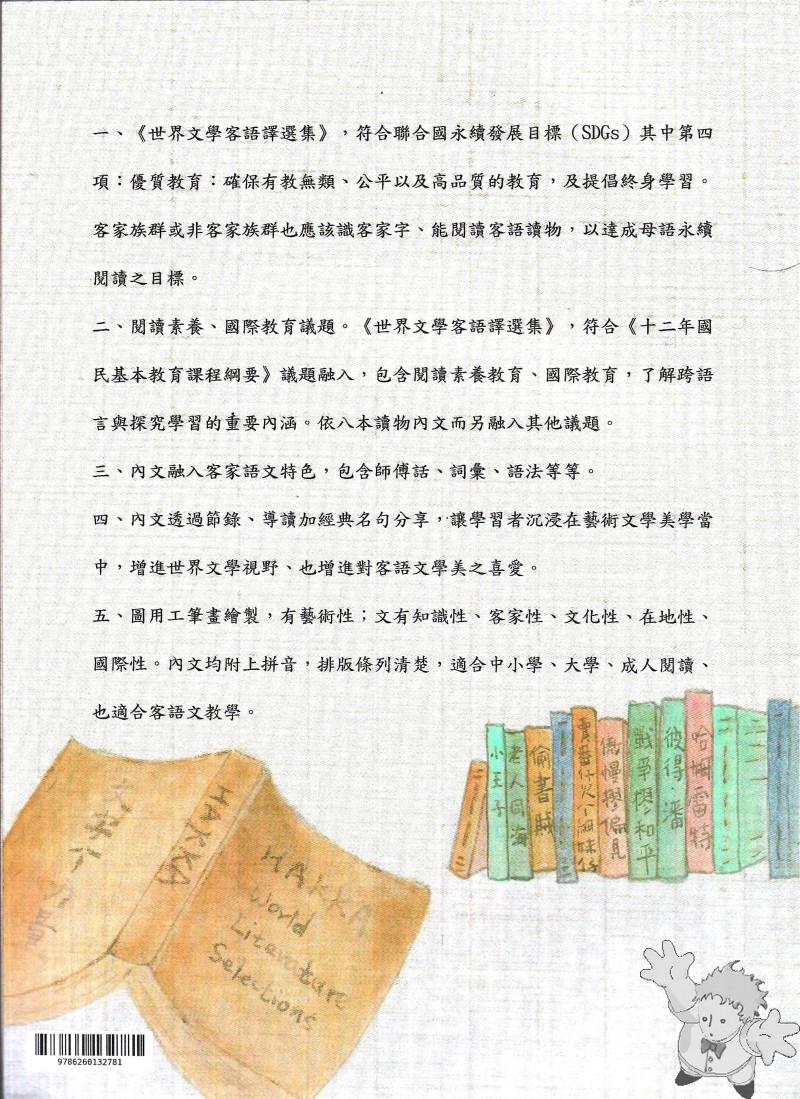 一、《世界文學客語譯選集》，符合聯合國永續發展目標（SDGs）其中第四
項：優質教育：確保有教無類、公平以及高品質的教育，及提倡終身學習。
客家族群或非客家族群也應該識客家字、能閱讀客語讀物，以達成母語永續
閱讀之目標。
二、閱讀素養、國際教育議題。《世界文學客語譯選集》，符合《十二年國
民基本教育課程綱要》議題融入，包含閱讀素養教育、國際教育，了解跨語
言與探究學習的重要內涵。依八本讀物內文而另融入其他議題。
三、內文融入客家語文特色，包含師傅話、詞彙、語法等等。
四、內文透過節錄、導讀加經典名句分享，讓學習者沉浸在藝術文學美學當
中，增進世界文學視野、也增進對客語文學美之喜愛。
五、圖用工筆畫繪製，有藝術性；文有知識性、客家性、文化性、在地性、
國際性。內文均附上拼音，排版條列清楚，適合中小學、大學、成人閱讀、
也適合客語文教學。
小王子
老人同海
偷書賊
傲慢摎偏見
戰爭摎和平
彼得·潘
哈姆雷特
HAKKA
HAKKA
World
Literature
Selections
9786260132781